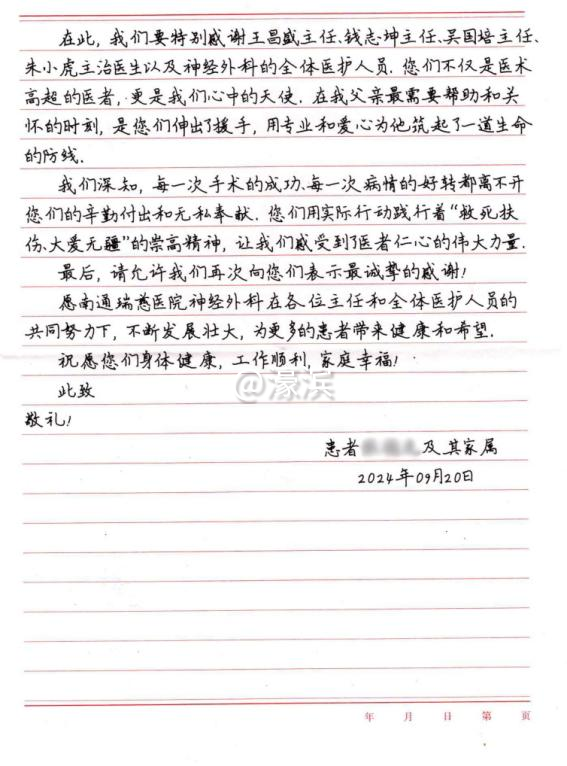 在此,我们要特别感谢王昌盛主任、钱志坤主任、吴国培主任、
朱小虎主治医生以及神经外科的全体医护人员.您们不仅是医术
高超的医者,更是我们心中的天使.在我父亲最需要帮助和关
怀的时刻,是您们伸出了援手,用专业和爱心为他筑起了一道生命
的防线.
我们深知,每一次手术的成功、每一次病情的好转都离不开
您们的辛勤付出和无私奉献.您们用实际行动践行着“救死扶
伤、大爱无疆”的崇高精神,让我们感受到了医者仁心的伟大力量.
最后,请允许我们再次向您们表示最诚挚的感谢!
愿南通瑞慈医院神经外科在各位主任和全体医护人员的
共同努力下,不断发展壮大,为更多的患者带来健康和希望.
祝愿您们身体健康,工作顺利,家庭幸福!
@濠滨
此致
敬礼!
患者 及其家属
2024年09月20日
年 月 日 第 页